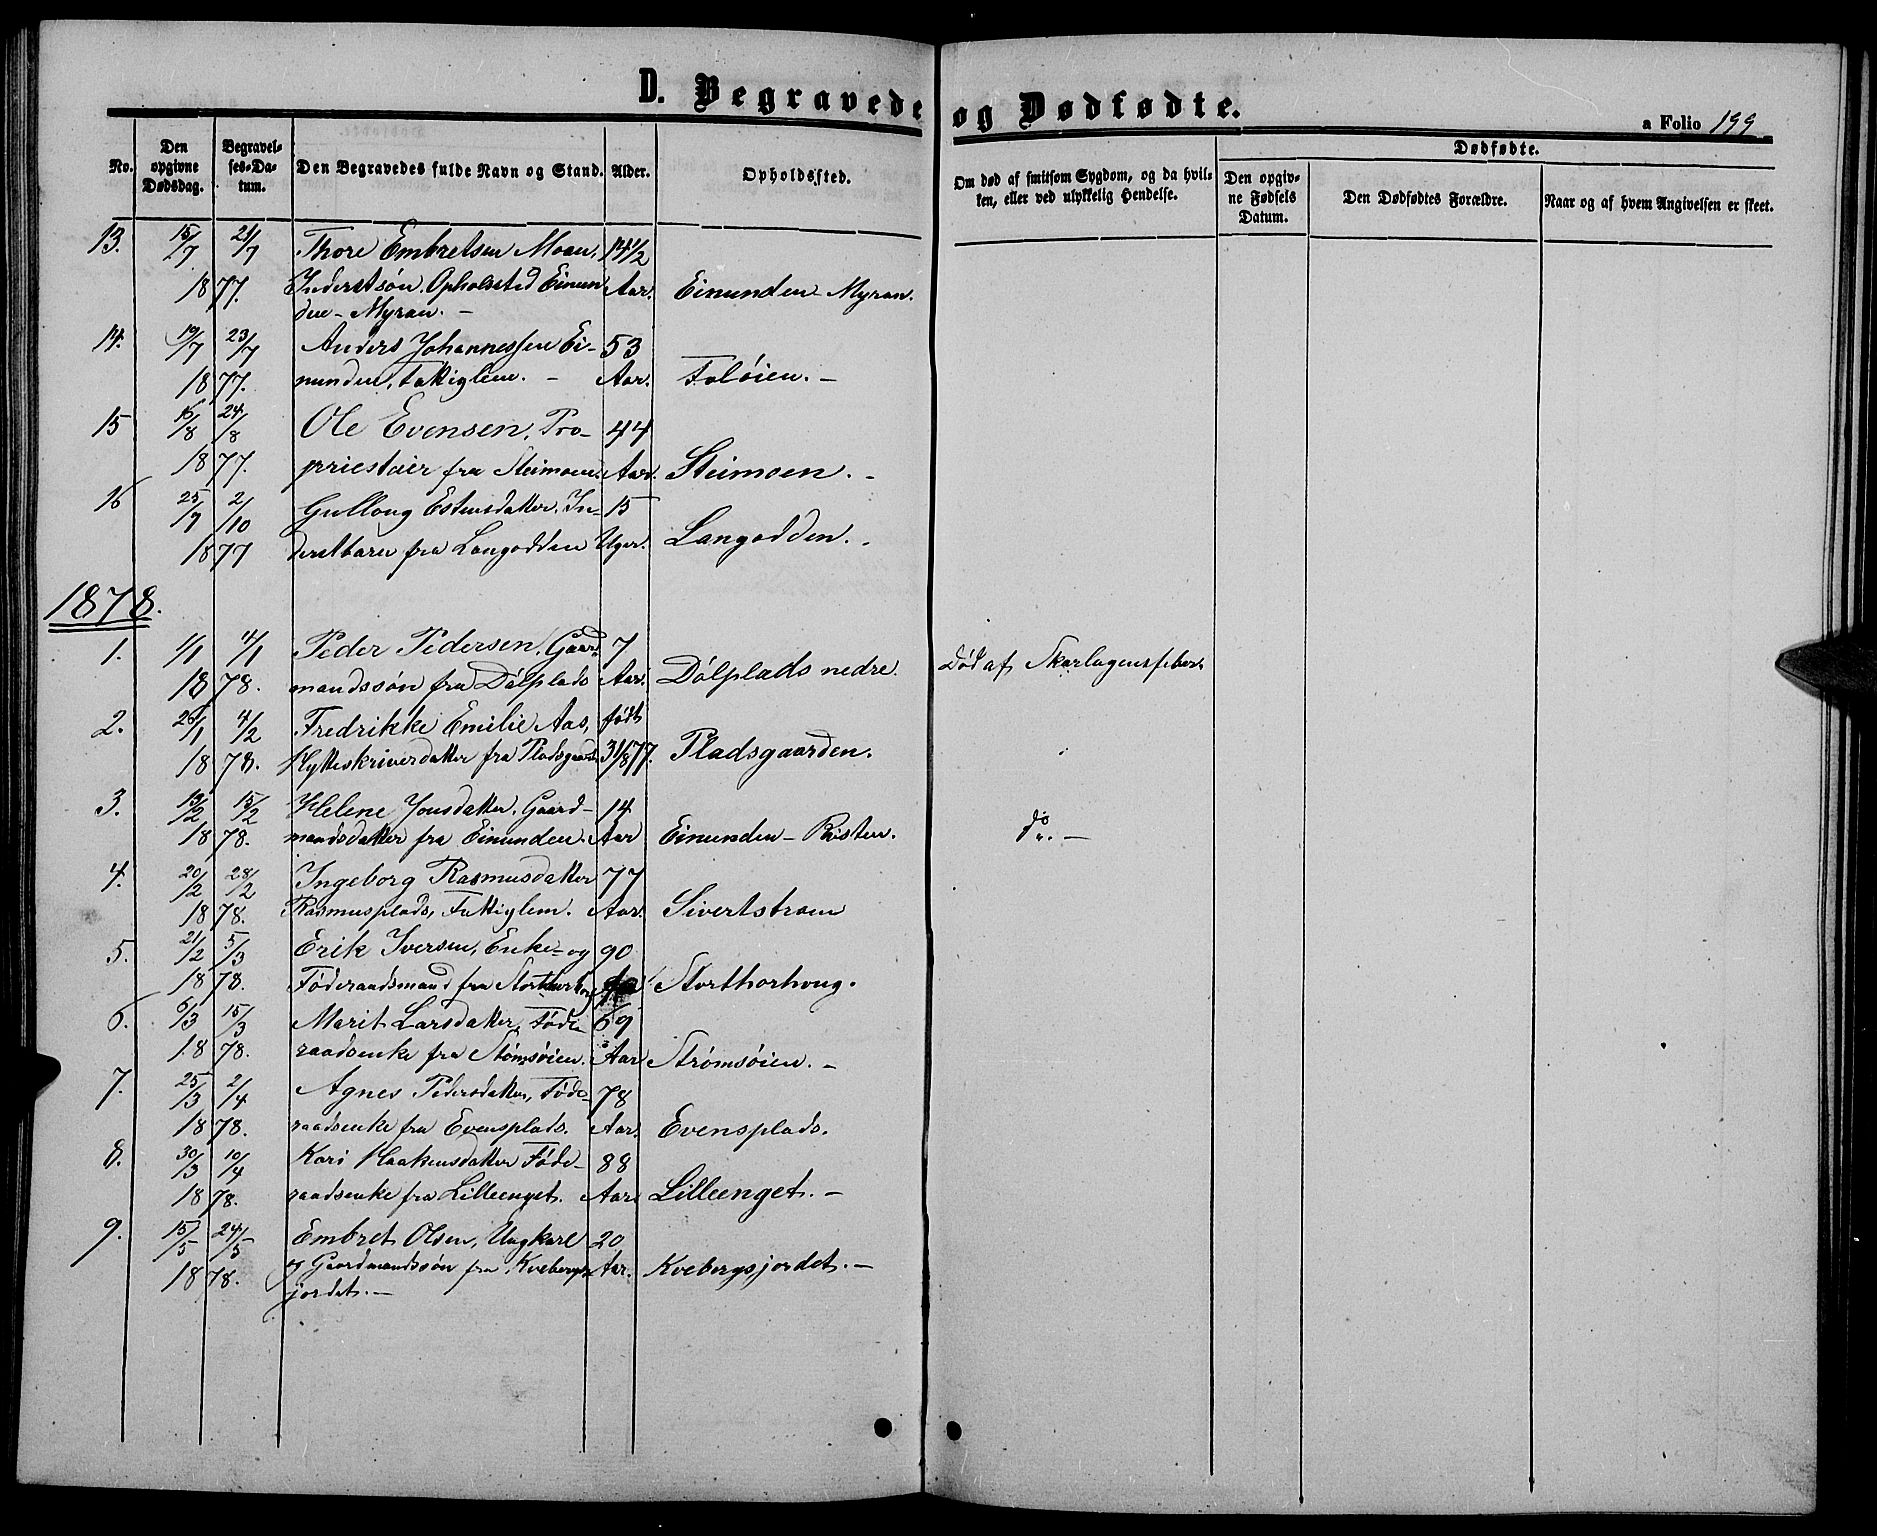 D. Begravede og Dødfødte.
a Folio 199
No.
Den opgivne Dødsdag.
Begravelses-Datum.
Den Begravedes fulde Navn og Stand.
Alder.
Opholdssted.
Om død af smitsom Sygdom, og da hvilken, eller ved ulykkelig Hendelse.
Dødfødte.
Den opgivne Fødsels Datum.
Den Dødfødtes Forældre.
Naar og af hvem Angivelsen er skeet.
13. 15/7 21/7 Thore Embretsen Moan, 14 1/2
1877. Inderstsøn, Opholssted Einun Aar. Einunden-Myran.
den-Myran. -
14. 19/7 23/7 Anders Johannessen Ei- 53
1877. nunden, Fattiglem. - Aar. Foløien. -
15 16/8 24/8 Ole Evensen, Pro- 44
1877. priestair fra Steimoen. Aar. Steimoen. -
16 25/9 2/10 Gullong Estensdatter, In- 15
1877 derstbarn fra Langodden Uger. Langodden. -
1878.
1. 1/1 4/1 Peder Pedersen, Gaard- 7
1878. mandssøn fra Dølplads Aar. Dølplads nedre. Død af Skarlagensfeber.
2. 26/1 4/2 Fredrikke Emilie Aas, født
1878. Hytteskriverdatter fra Pladsgaard. 31/8 77. Pladsgaarden.
3. 13/2 15/2 Helene Jonsdatter, Gaard- 14
1878. mandsdatter fra Einunden. Aar Einunden-Røsten. do. -
4. 20/2 28/2 Ingeborg Rasmusdatter 77
1878. Rasmusplads, Fattiglem. Aar. Sivertstrøen
5. 21/2 5/3 Erik Iversen, Enke- og 90
1878. Føderaadsmand fra Storthorhoug Storthorhoug.
6. 6/3 15/3 Marit Larsdatter, Føde- 69
1878. raadsenke fra Stømsøien. Aar Strømsøien. -
7. 25/3 2/4 Agnes Pedersdatter, Føde- 78
1878. raadsenke fra Evensplads. Aar. Evensplads.
8. 30/3 10/4 Kari Haakensdatter Føde- 88
1878. raadsenke fra Lilleenget. Aar. Lilleenget. -
9. 15/5 24/5 Embret Olsen, Ungkarl 20
1878. og Gaardmandssøn fra Kvebergs- Aar. Kvebergsjordet. -
jordet. -